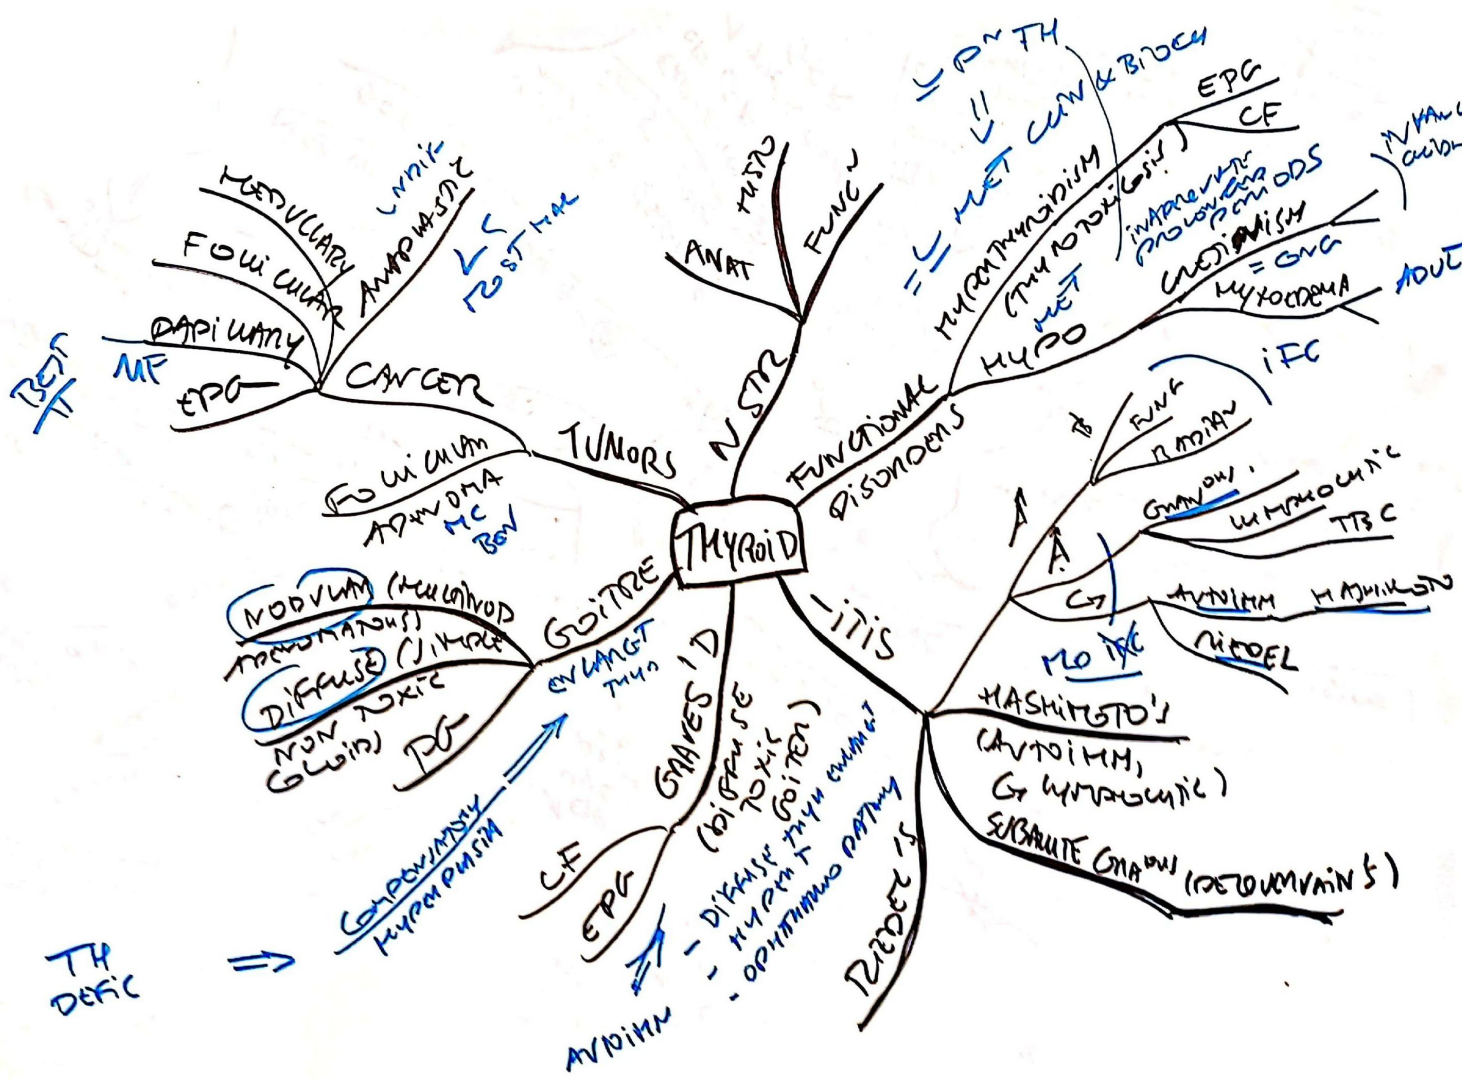 THYROID
N STR
ANAT
HISTO
FUNCⁿ
FUNCTIONAL
DISORDERS
HYPERTHYROIDISM
(THYROTOXICOSIS)
EPG
CF
HYPO
CRETINISM
= CNG
MYXOEDEMA
ADULT
MET
INAPPROPRIATE
PROLONGED
PERIODS
TH
MET CLIN & BIOCH
-ITIS
A
B
FUNG
RADIAN
IFC
A
GRANOM.
LYMPHOCYTIC
TBC
C
AUTOIMM
HASHIMOTO
RIEDEL
NO IFC
HASHIMOTO'S
(AUTOIMM,
C LYMPHOCYTIC)
SUBACUTE GRANOM (DEQUERVAIN'S)
RIEDEL'S
GRAVES' D
(DIFFUSE
TOXIC
GOITER)
CF
EPG
AUTOIMM
- DIFFUSE THYR ENLARGT
- HYPER T
- OPHTHALMO PATHY
GOITRE
ENLARGET
THYR
NODULAR (MULTINOD
ADENOMATOUS)
DIFFUSE (SIMPLE
NON TOXIC
COLLOID)
PG
COMPENSATORY
HYPERPLASIA
TH
DEFIC
TUMORS
FOLLICULAR
ADENOMA
MC
BEN
CANCER
EPG
PAPILLARY
MF
BEST
FOLLICULAR
MEDULLARY
ANAPLASTIC
UNDIF
MOST MAL